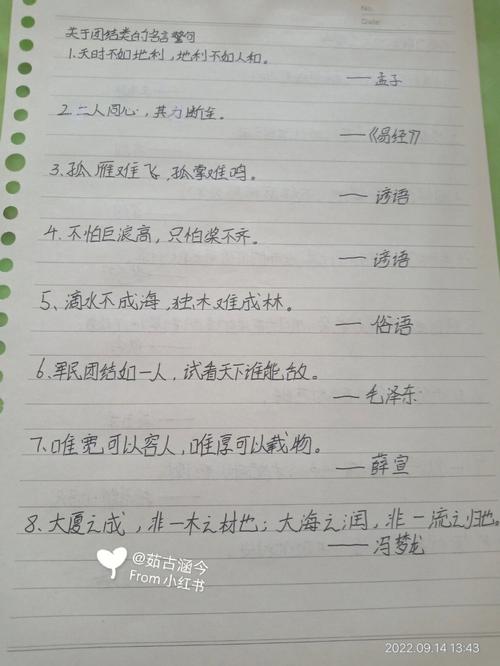 No.
Date:
关于团结类的名言警句
1.天时不如地利，地利不如人和。
——孟子
2.二人同心，其力断金。
——《易经》
3.孤雁难飞，孤掌难鸣。
——谚语
4.不怕巨浪高，只怕桨不齐。
——谚语
5、滴水不成海，独木难成林。
——俗语
6.军民团结如一人，试看天下谁能敌。
——毛泽东
7.唯宽可以容人，唯厚可以载物。
——薛宣
8.大厦之成，非一木之材也；大海之润，非一流之归也。
——冯梦龙
@茹古涵今
From 小红书
2022.09.14 13:43